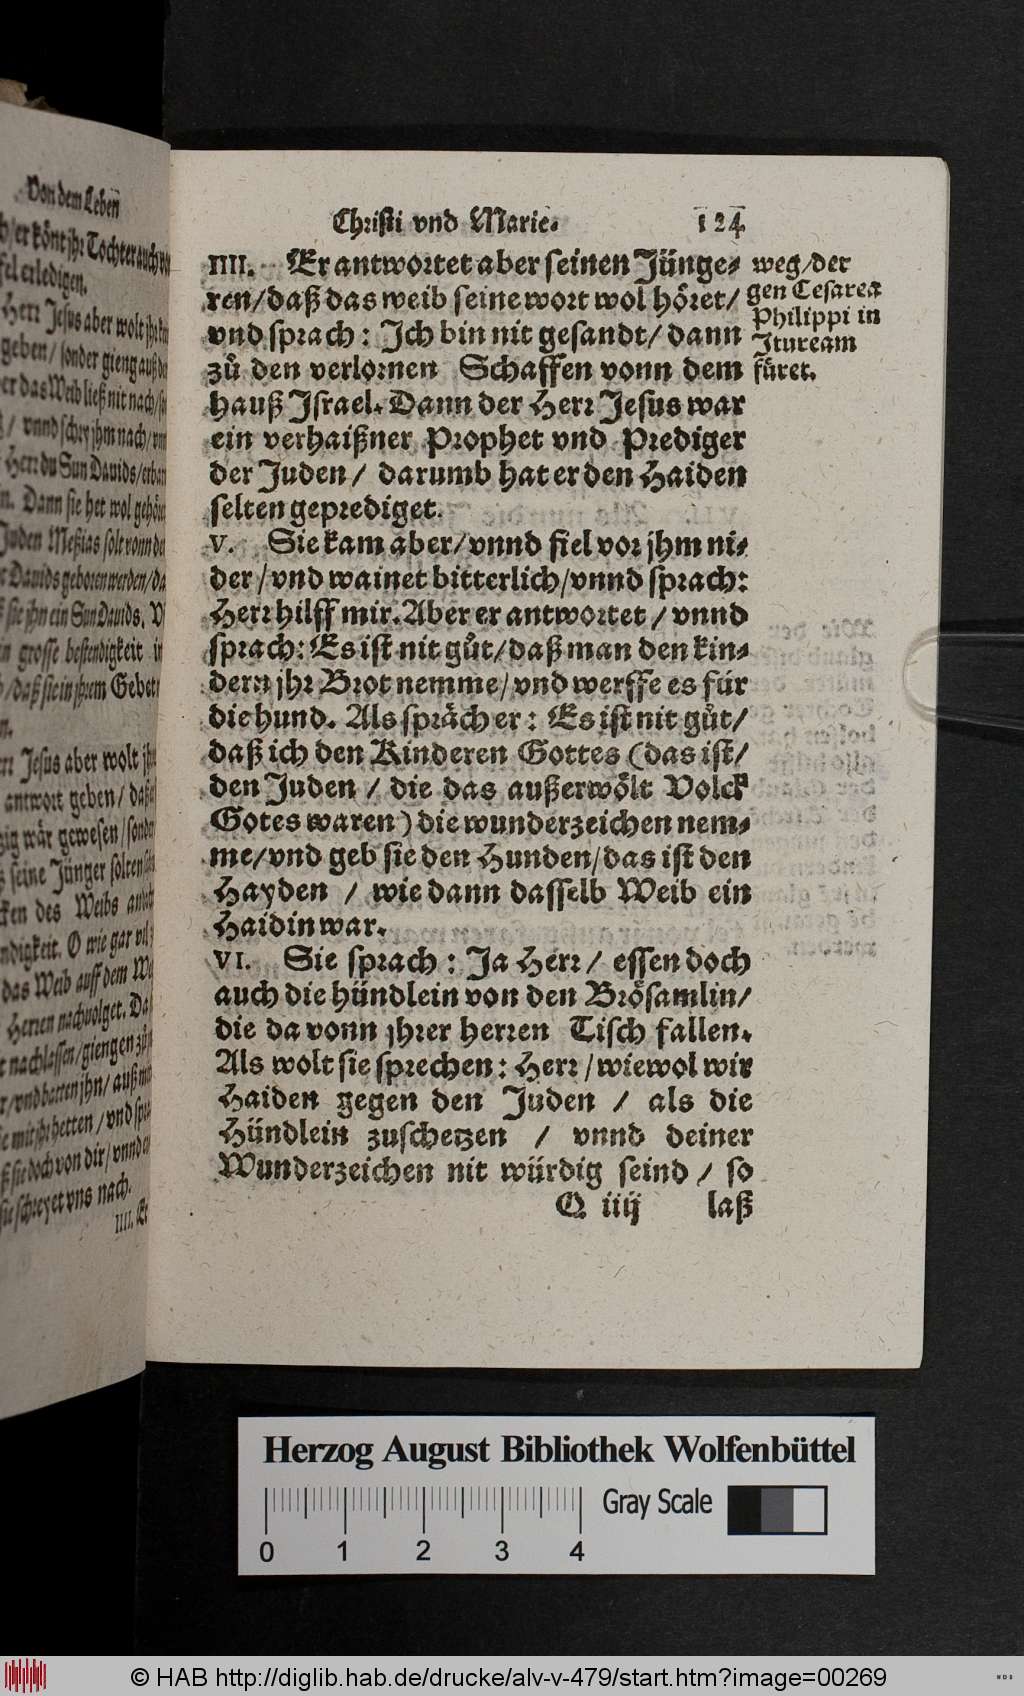 Von dem Leben
er könt jhr Tochter auch
fel erledigen.
Herr Jesus aber wolt jhr
geben / sonder gieng auß
er das Weib ließ nit nach /
/ vnnd schry jhm nach /
Herr du Sun Dauids /
n. Dann sie het wol
Juden Meßias solt vonn
Dauids geboren werden /
sie jhn ein Sun Dauids.
grosse bestendigkeit
/ daß sie in jhrem Gebet
Jesus aber wolt
antwort geben /
wär gewesen /
seine Jünger solten
des Weibs
O wie gar vil
das Weib auff dem
Herren nachuolget.
nachlassen / giengen
/ vnd batten jhn / auß
hetten / vnd
sie doch von dir / vnnd
sie schreyet vns nach.
IIII. Er
Christi vnd Marie. 124
IIII. Er antwortet aber seinen Jünge-
ren / daß das weib seine wort wol höret /
vnd sprach: Ich bin nit gesandt / dann
zů den verlornen Schaffen vonn dem
hauß Israel. Dann der Herr Jesus war
ein verhaißner Prophet vnd Prediger
der Juden / darumb hat er den Haiden
selten geprediget.
V. Sie kam aber / vnnd fiel vor jhm ni-
der / vnd wainet bitterlich / vnnd sprach:
Herr hilff mir. Aber er antwortet / vnnd
sprach: Es ist nit gůt / daß man den kin-
dern jhr Brot nemme / vnd werffe es für
die hund. Als spräch er: Es ist nit gůt /
daß ich den Kinderen Gottes (das ist /
den Juden / die das außerwölt Volck
Gotes waren) die wunderzeichen nem-
me / vnd geb sie den Hunden / das ist den
Hayden / wie dann dasselb Weib ein
Haidin war.
VI. Sie sprach: Ja Herr / essen doch
auch die hündlein von den Brösamlin /
die da vonn jhrer herren Tisch fallen.
Als wolt sie sprechen: Herr / wiewol wir
Haiden gegen den Juden / als die
Hündlein zuschetzen / vnnd deiner
Wunderzeichen nit würdig seind / so
Q iiij laß
weg / der
gen Cesarea
Philippi in
Ituream
füret.
Herzog August Bibliothek Wolfenbüttel
Gray Scale
0 1 2 3 4
© HAB http://diglib.hab.de/drucke/alv-v-479/start.htm?image=00269